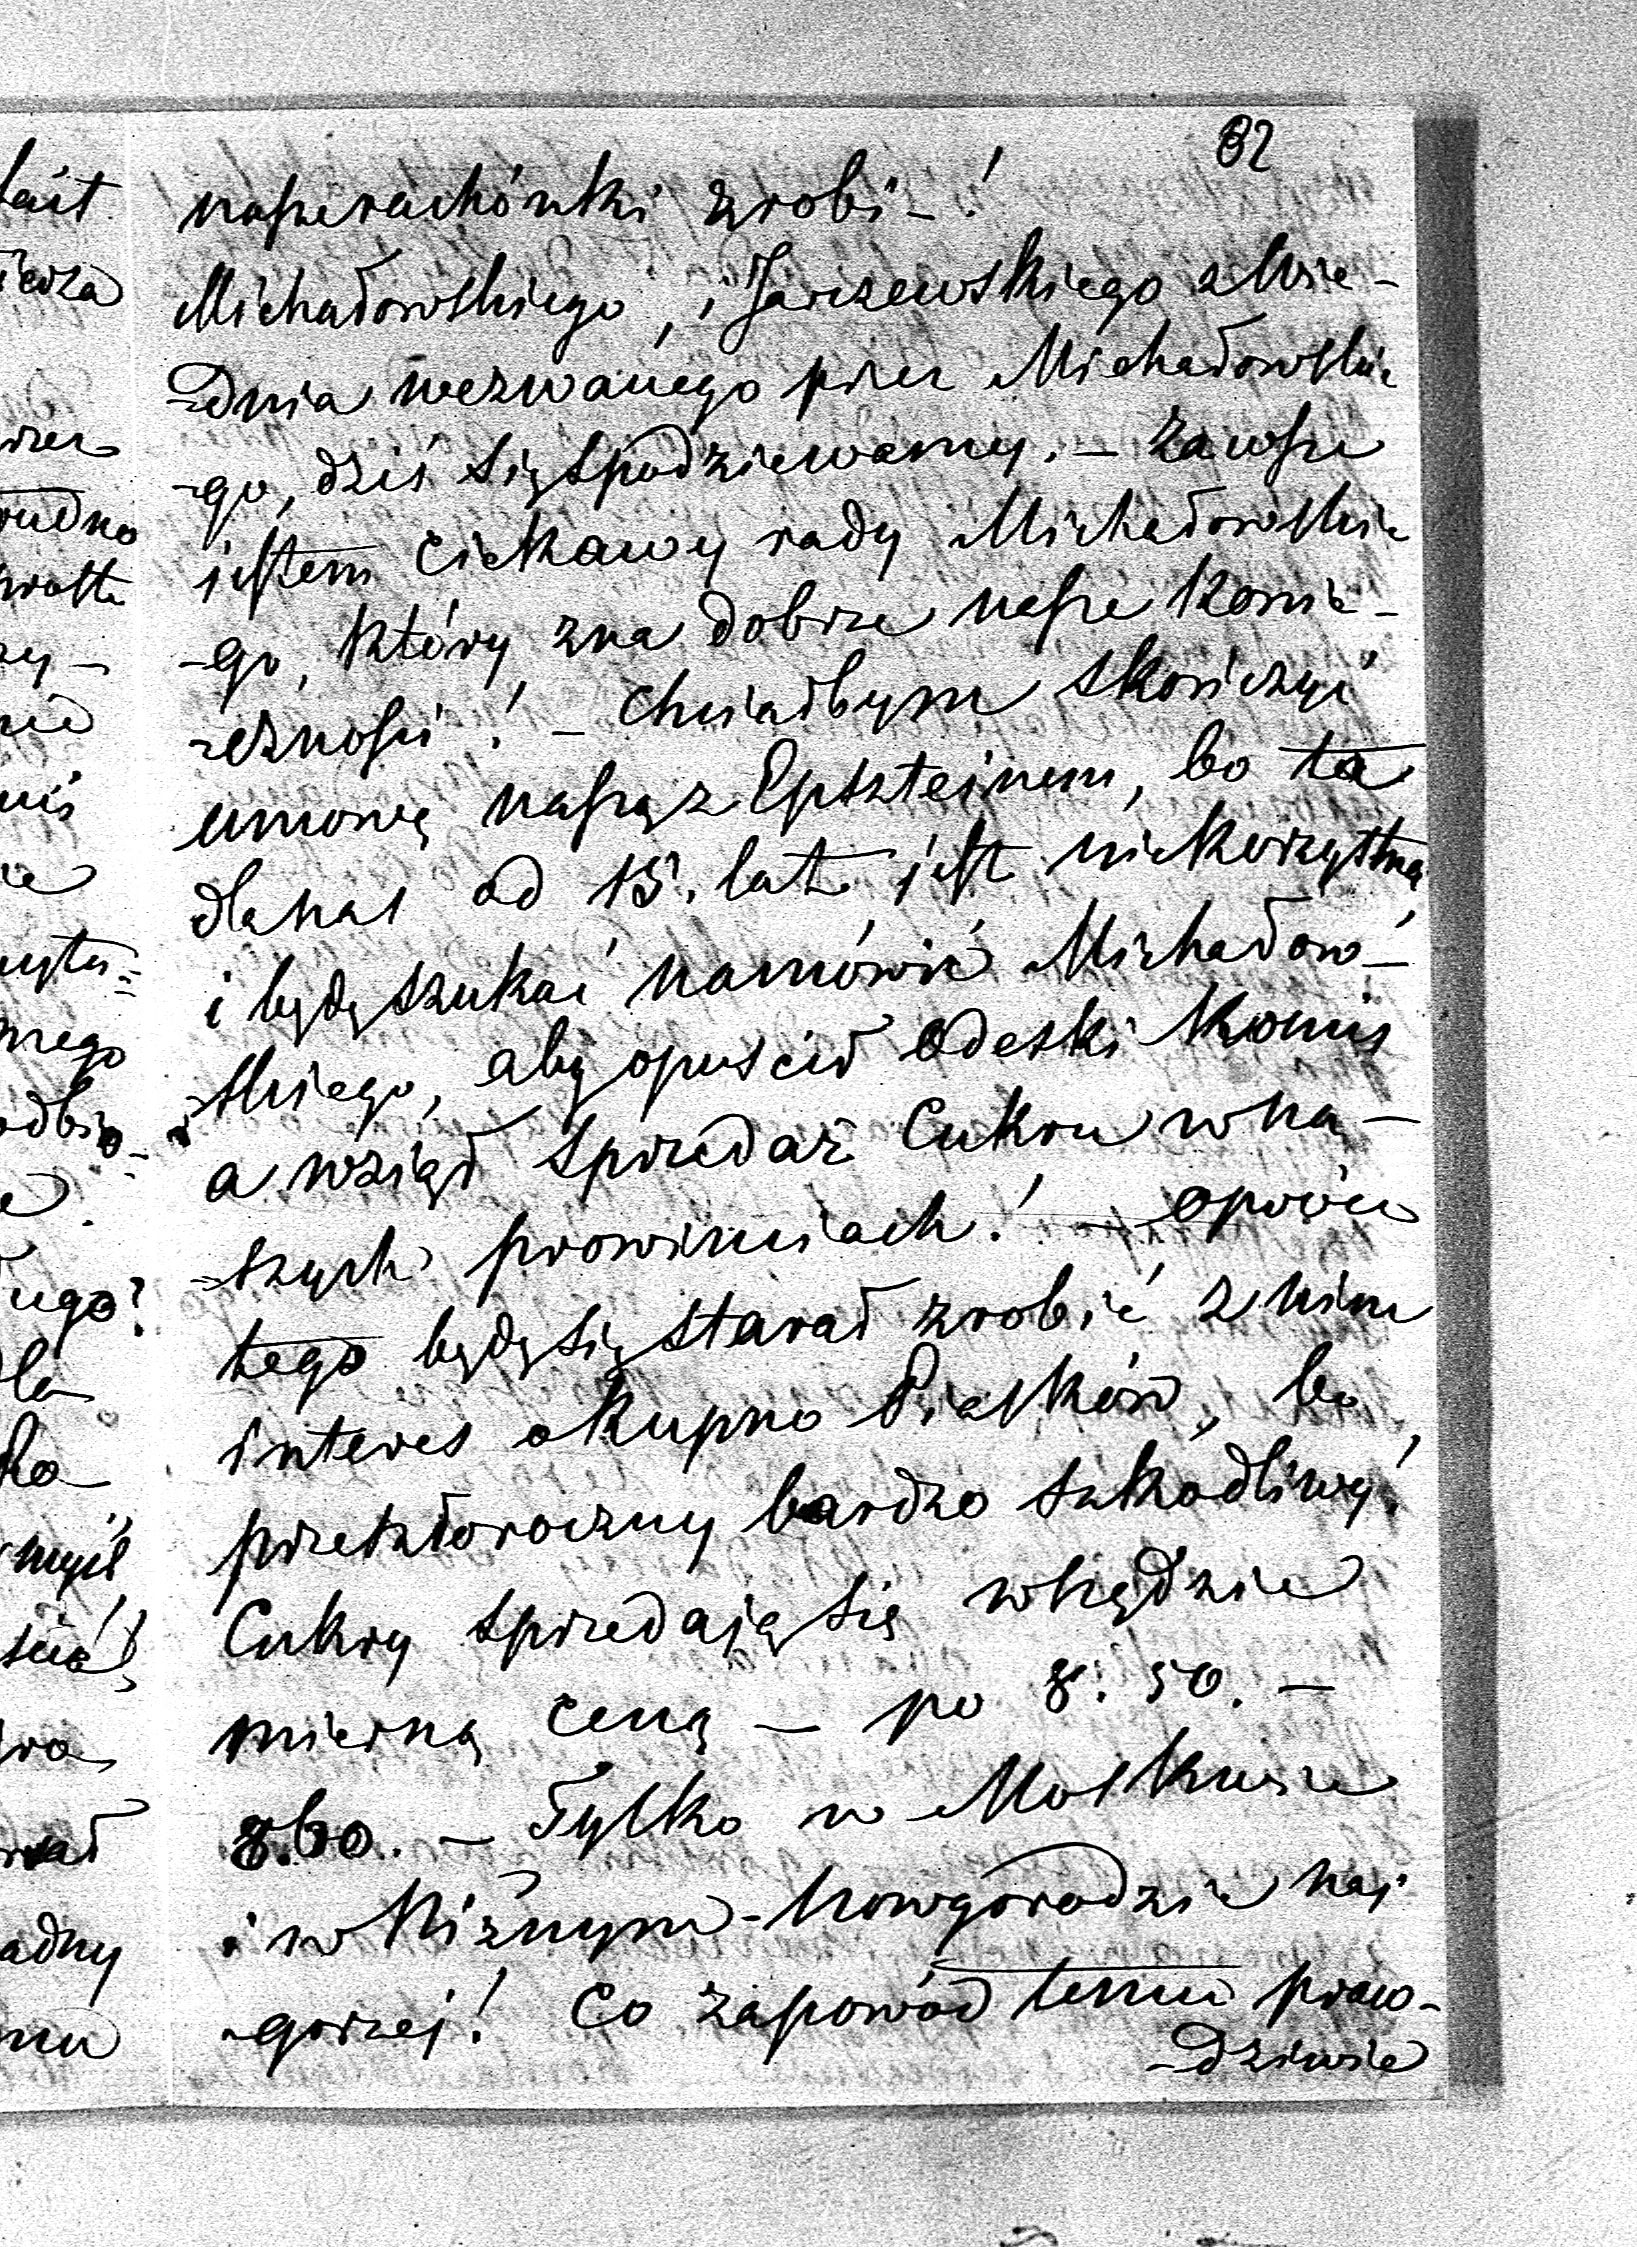 82
nasze rachónki zrobi-!
Michałowskiego, i Jarszewskiego z Wie-
-dnia wezwanego przez Michałowskie
-go, dziś się spodziewamy. – Zawsze
jestem ciekawy rady Michałowskie
-go, który zna dobrze nasze konie-
-czności! – Chciałbym skończyć
umową naszą z Epszteinem, bo ta
dla nas od 15. lat jest niekorzystną,
i będę szukać namówić Michałow-
skiego, aby opuścił Odeski Komis
a wziął sprzedaż Cukru w na-
-szych prowinciach! – oprócz
tego będę się starał zrobić z nim
interes o kupno Piasków, bo,
przeszłoroczny bardzo szkodliwy!
Cukry sprzedają się wszędzie
mierną ceną – po 8. 50. –
8.60. – Tylko w Moskwie
i w Niżnym-Nowgorodzie naj
-gorzej! Co za powód temu praw-
-dziwie